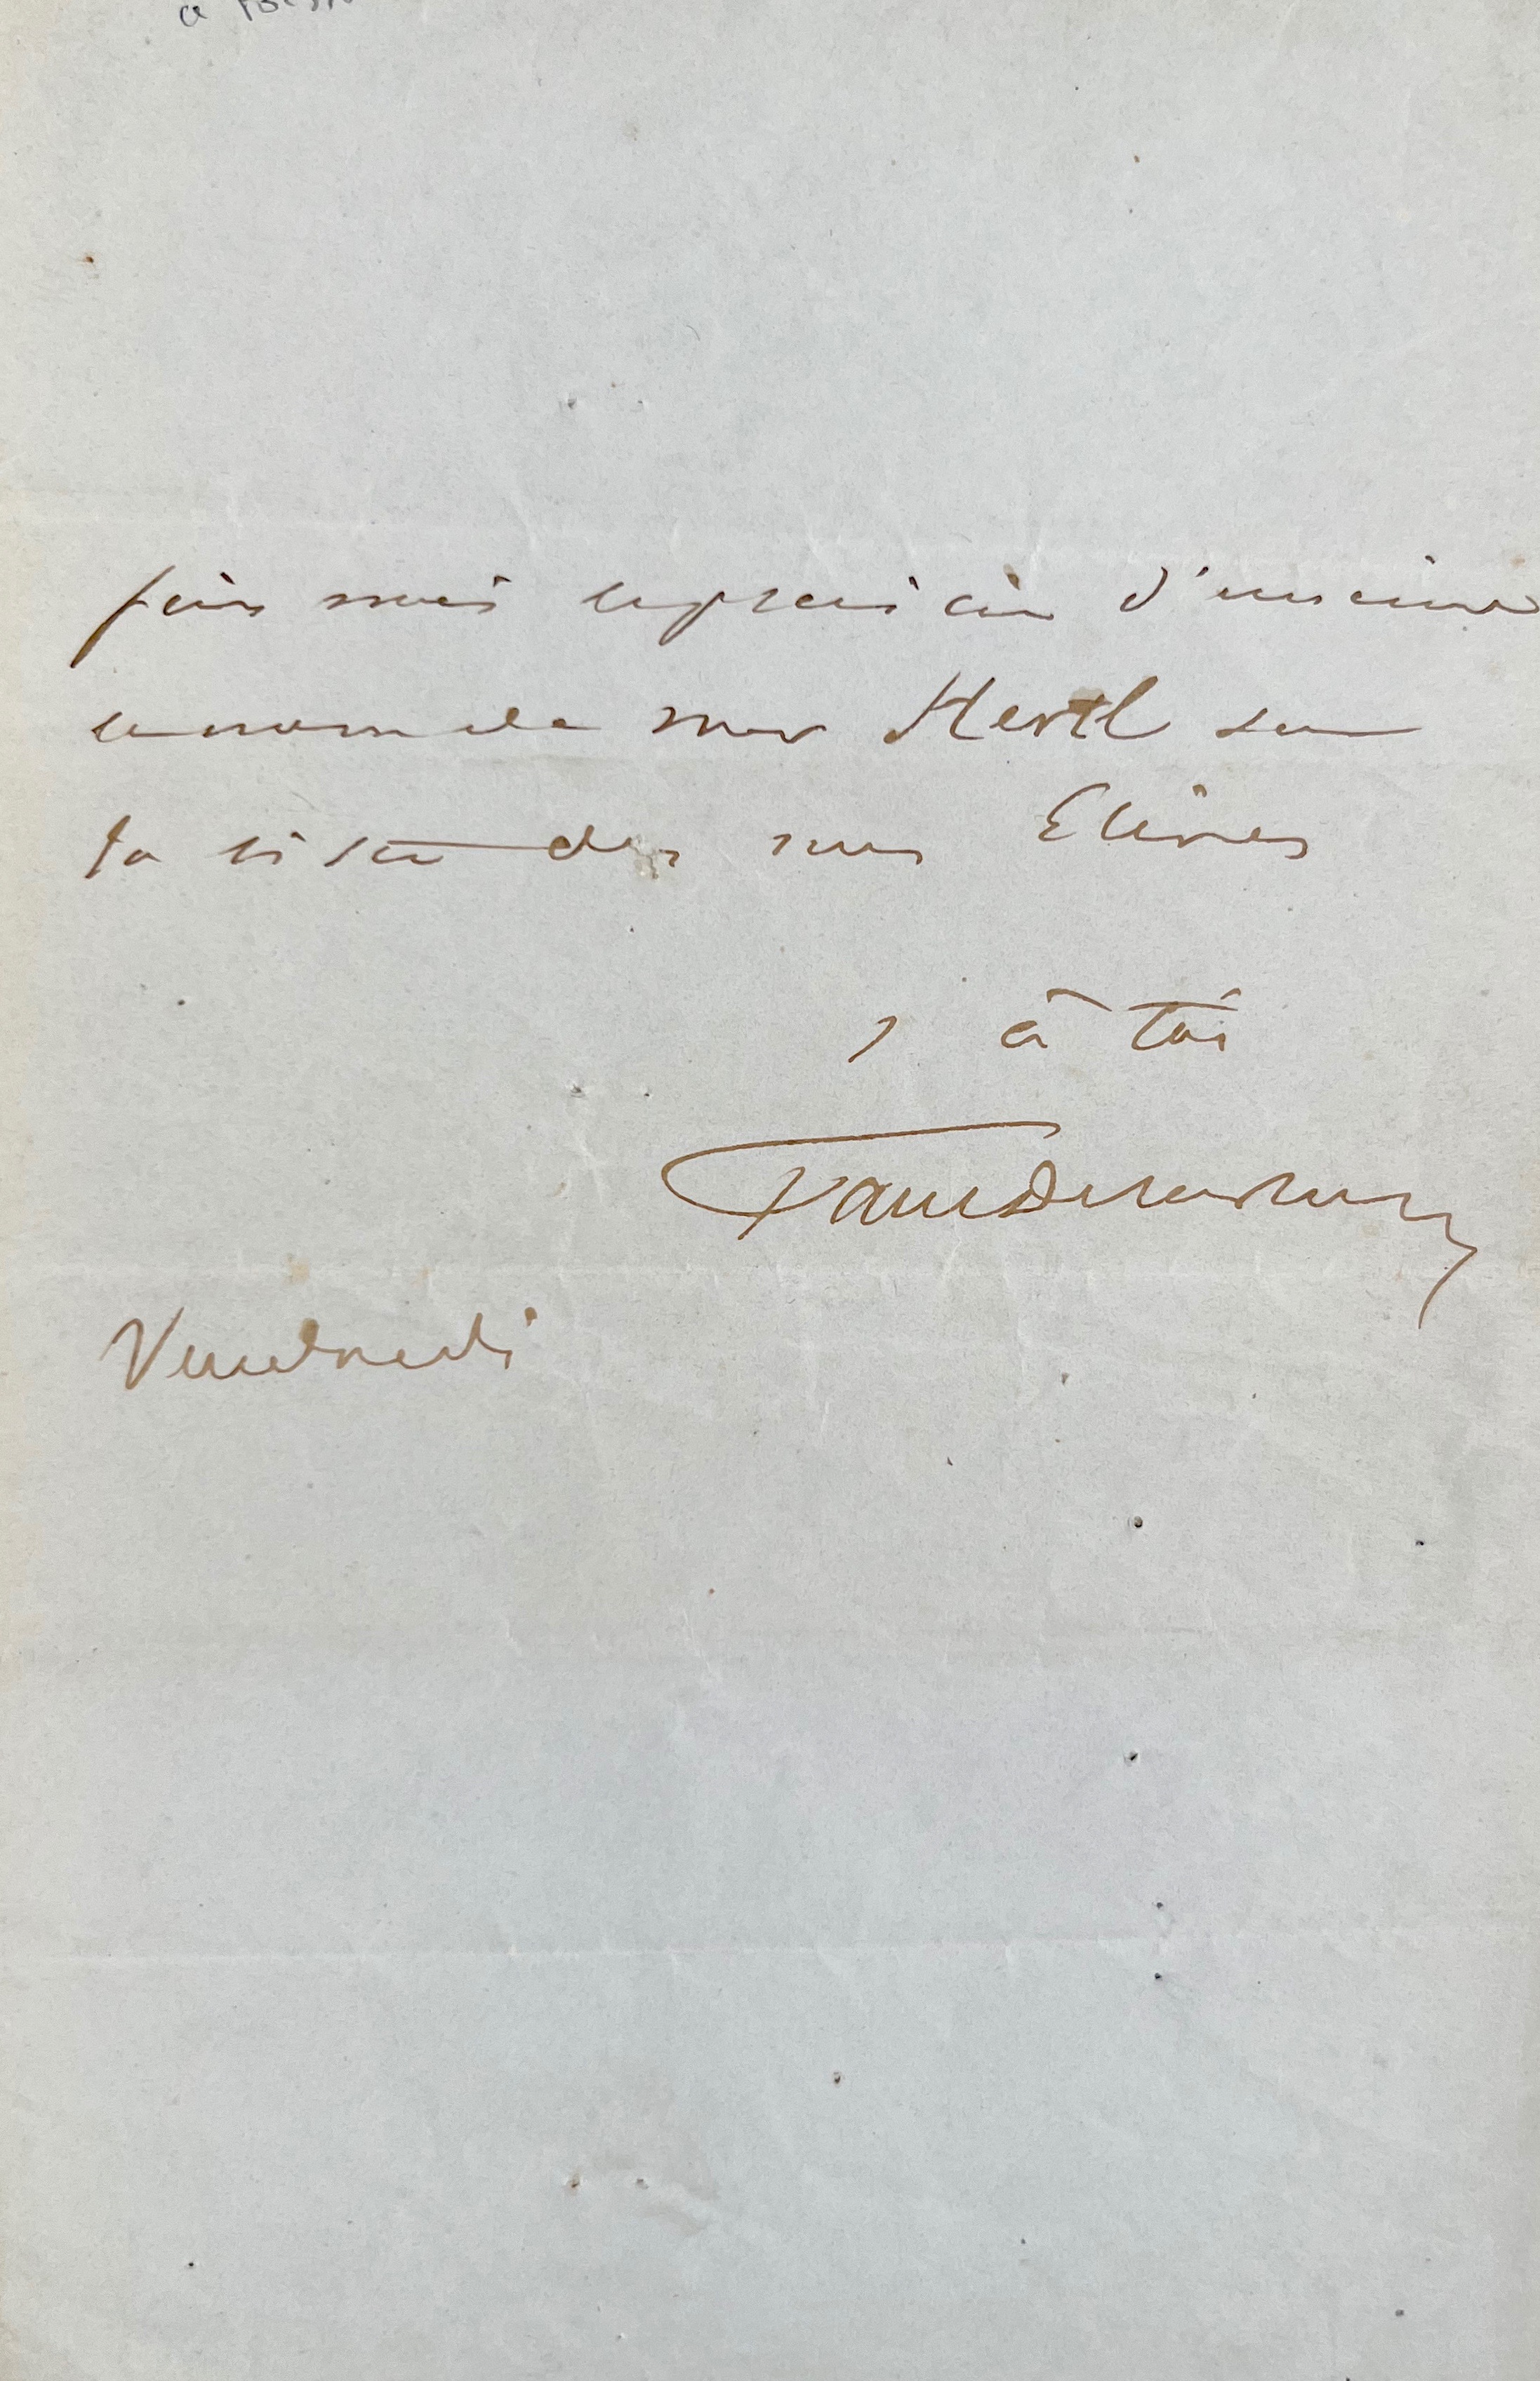 fais moi le plaisir d'inscrire
le nom de Mr Hertl sur
la liste des nos Elèves
à toi
Vendredi